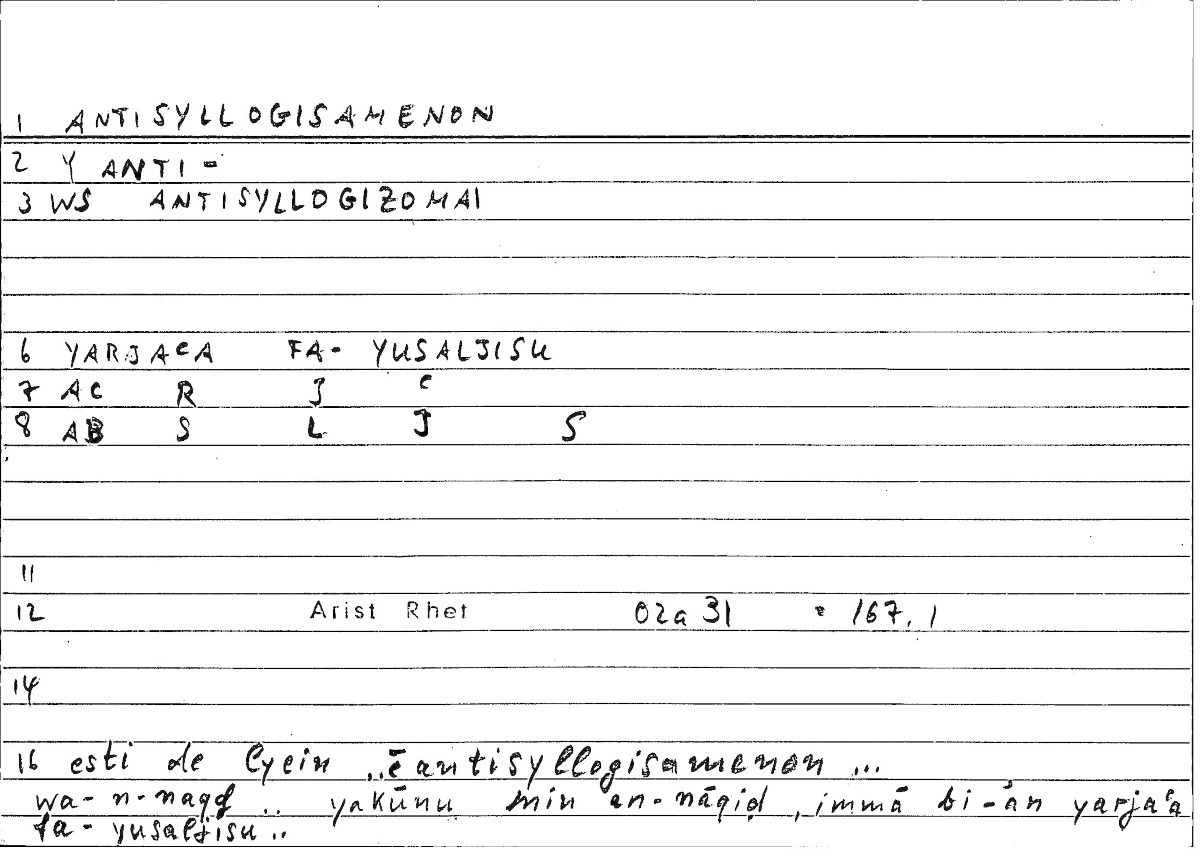 1 ANTISYLLOGISAMENON
2 Y ANTI-
3 WS ANTISYLLOGIZOMAI
6 YARJAcA FA- YUSALJISU
7 AC R J c
8 AB S L J S
11
12 Arist Rhet 02a 31 = 167, 1
14
16 esti de lyein ..ē antisyllogisamenon ...
wa- n-naqḍ .. yakūnu min an-nāqiḍ, immā bi-'an yarjaʿa
fa- yusaljisu ..